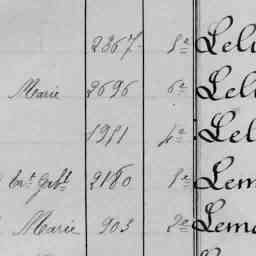 2367 5e Lel
Marie 2696 6e Lel
1981 4e Lel
2180 1e Lem
Marie 903 2e Lema